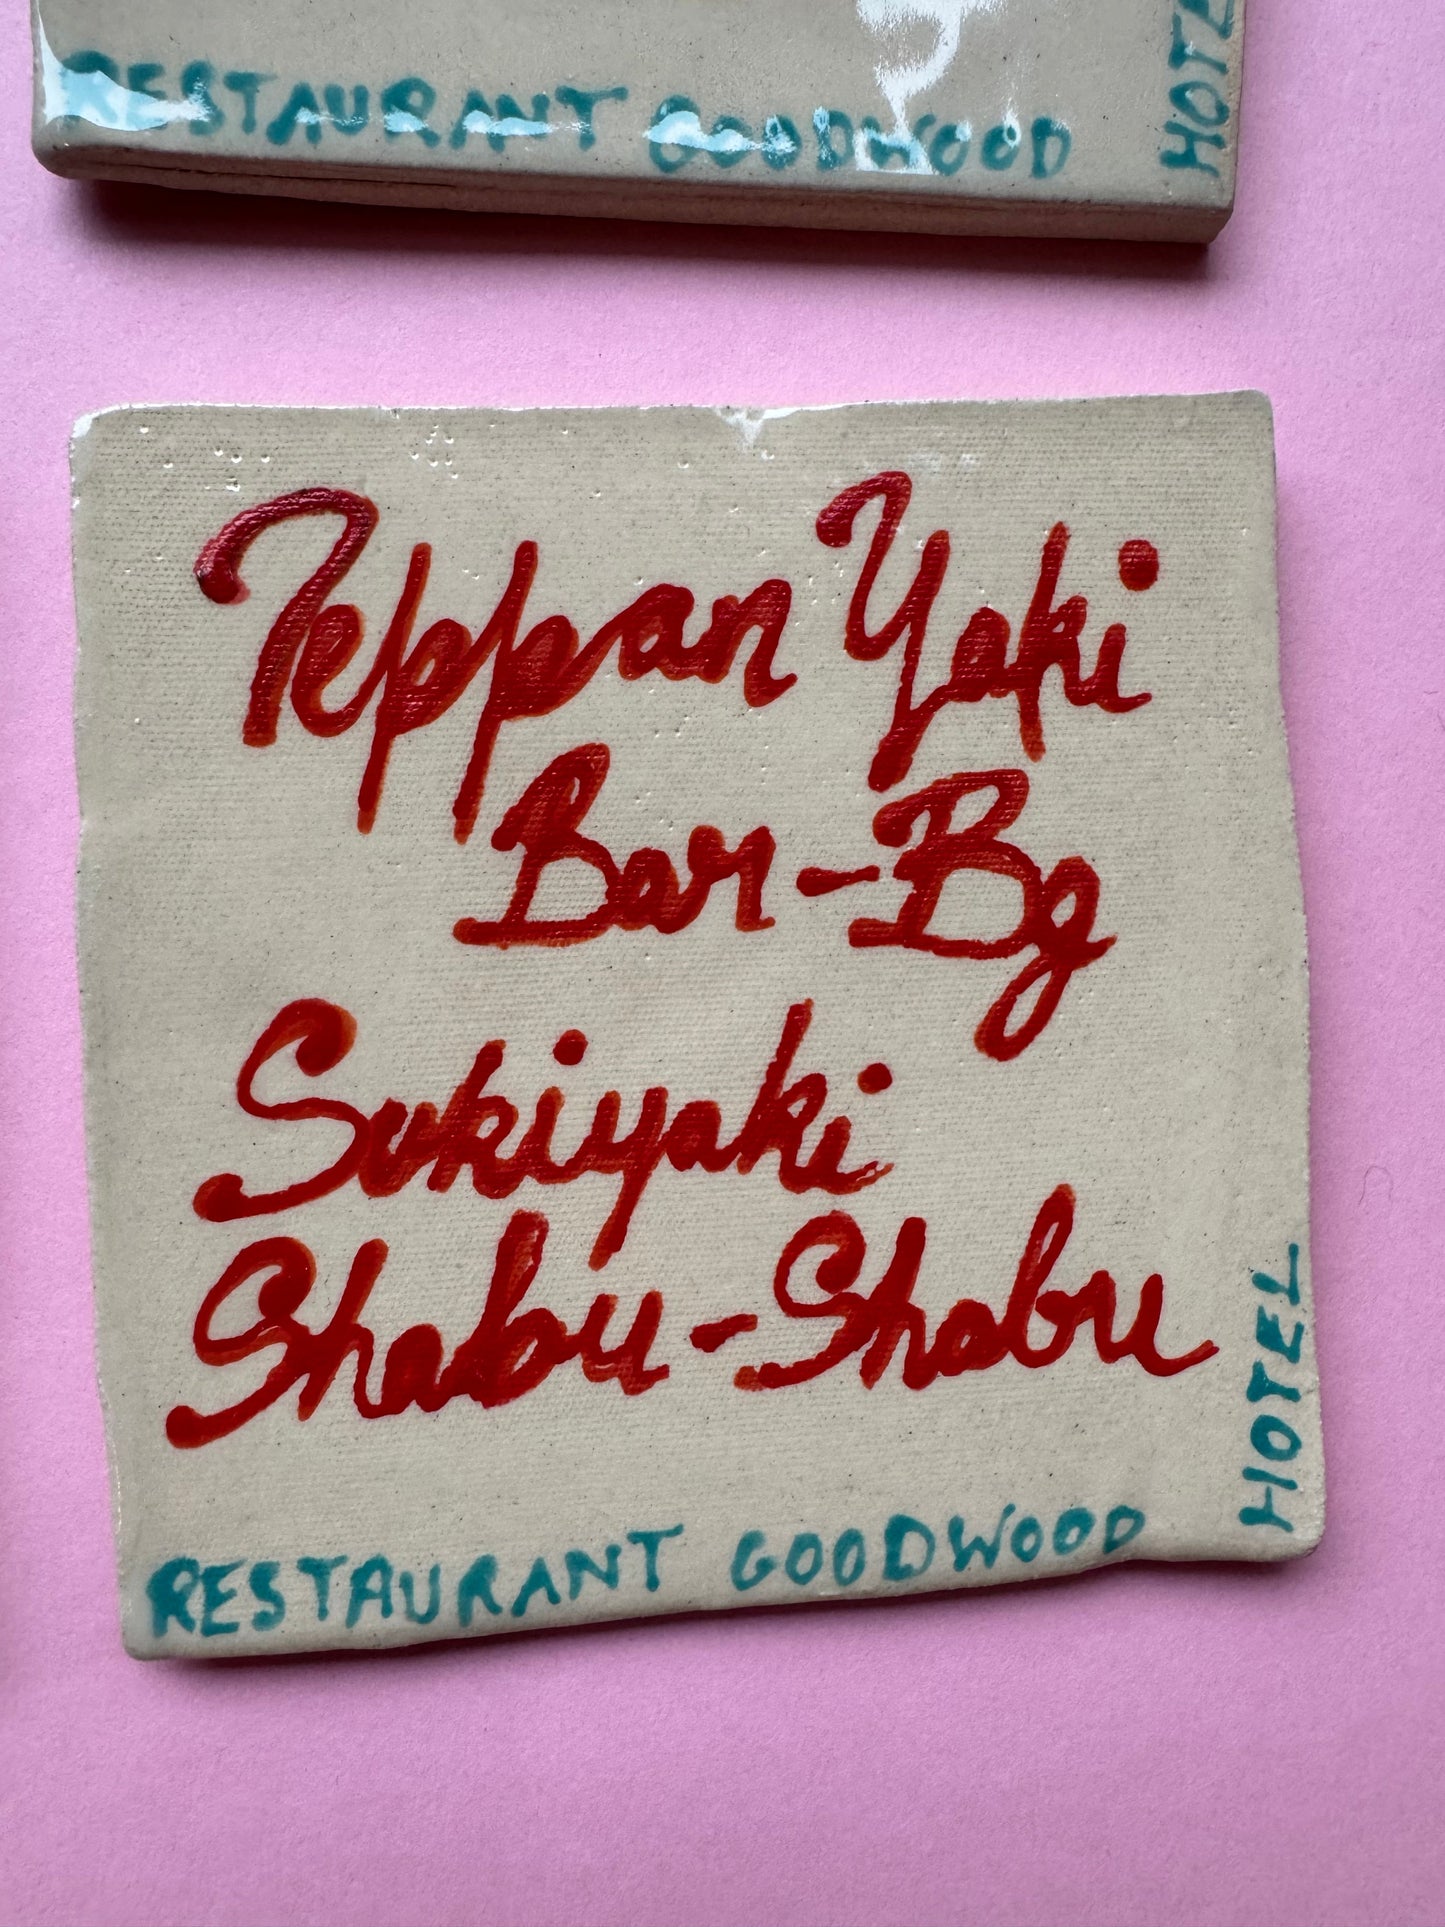 RESTAURANT GOODWOOD
HOTE
Teppan Yaki
Bar-Bq
Sukiyaki
Shabu-Shabu
RESTAURANT GOODWOOD
HOTEL